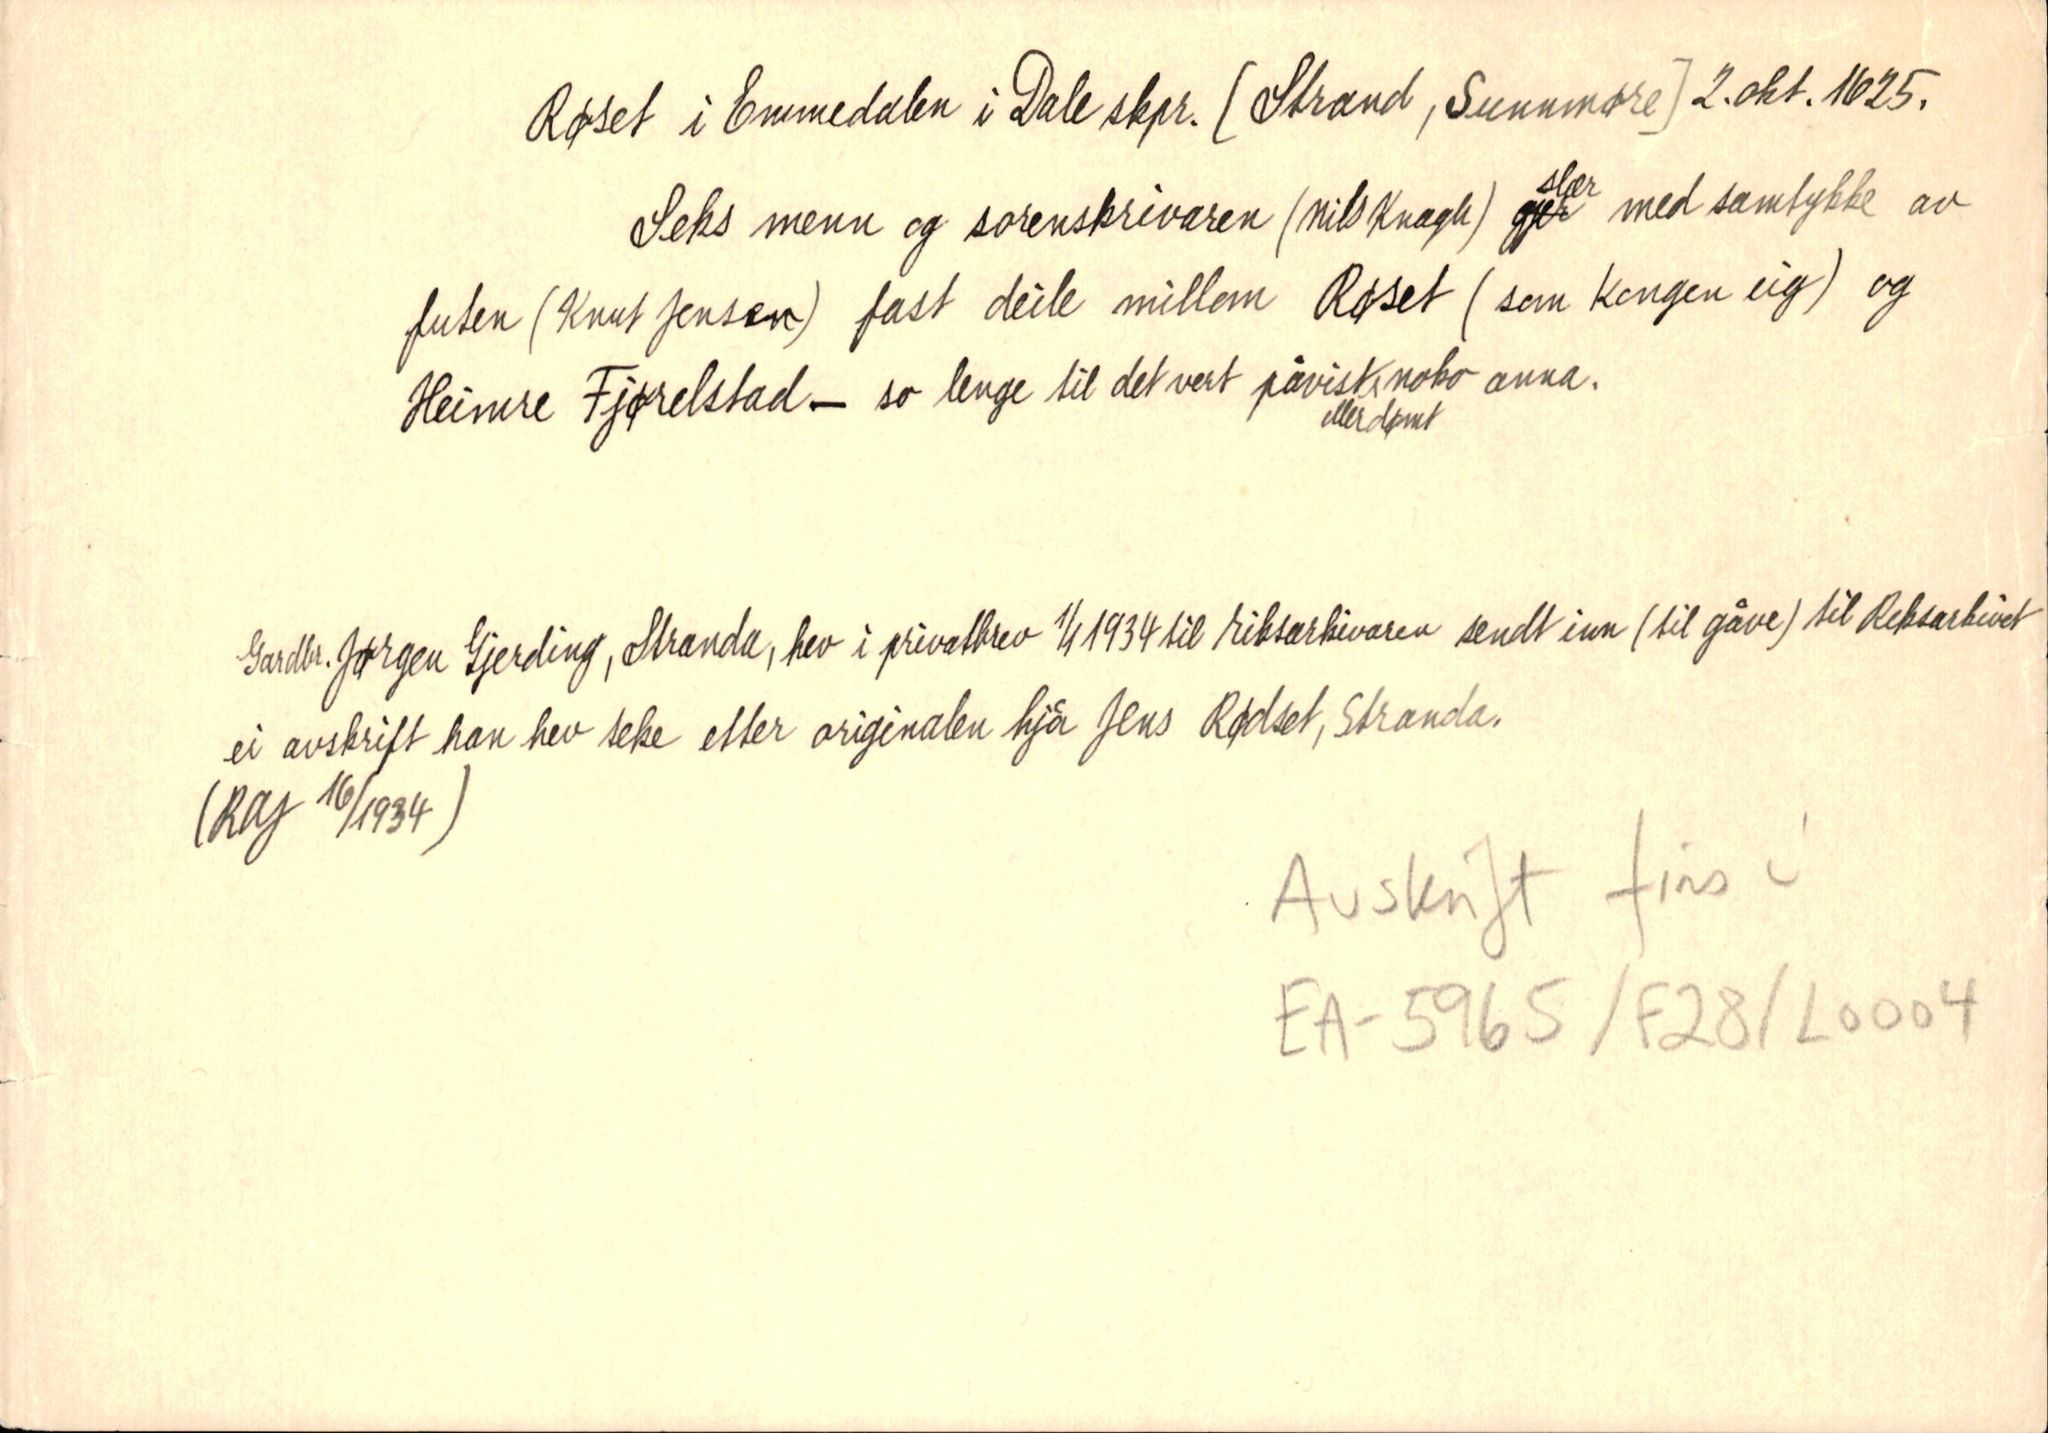 Røset i Emmedalen i Dale skpr. [Strand, Sunnmøre] 2. okt. 1625.
Seks menn og sorenskrivaren (Nils Knagh) slær med samtykke av
futen (Knut Jensen) fast deile millom Røset (som Kongen eig) og
Heimre Fjørelstad — so lenge til det vert påvist eller dømt noko anna.
Gardbr. Jørgen Gjerding, Stranda, hev i privatbrev 1/1 1934 til riksarkivaren sendt inn (til gåve) til Reksarkivet
ei avskrift han hev teke etter originalen hjå Jens Rødset, Stranda.
(RAJ 16/1934)
Avskrift fins i
EA-5965/F28/L0004